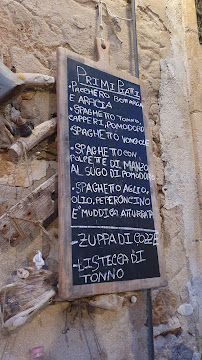 PRIMI PIATTI
PACCHERO BOTTARGA
E ARICIA
SPAGHETTO TONNO,
CAPPERI, POMODORO
SPAGHETTO VONGOLE
• SPAGHETTO CON
POLPETTE DI MANZO
AL SUGO DI POMODORO
• SPAGHETTI AGLIO,
OLIO, PEPERONCINO
E MUDDICA ATTURRATA
- ZUPPA DI COZZE
- BISTECCA DI
TONNO